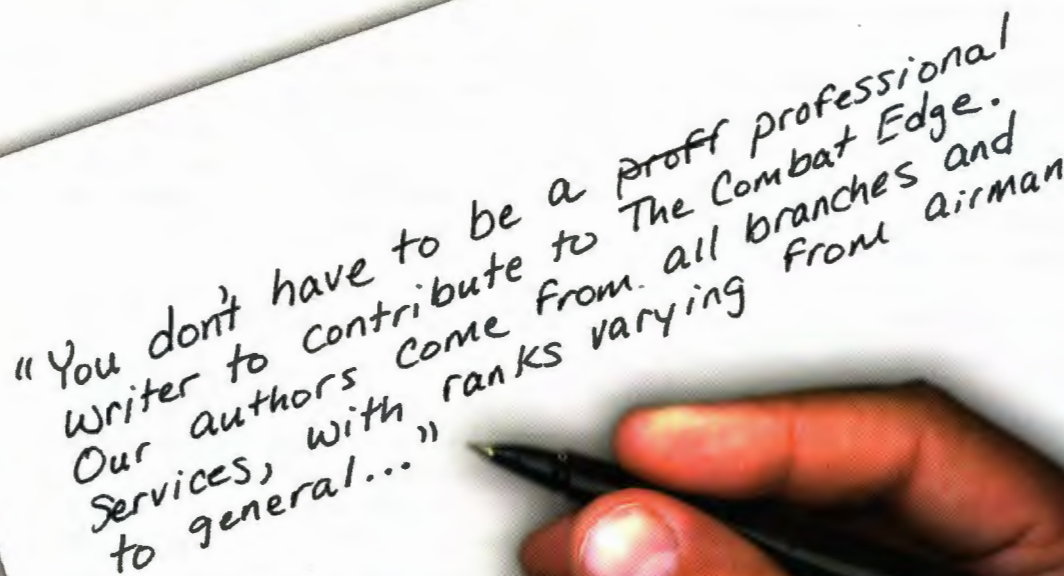 "You don't have to be a proff professional
writer to contribute to The Combat Edge.
Our authors come from all branches and
services, with ranks varying from airman
to general..."